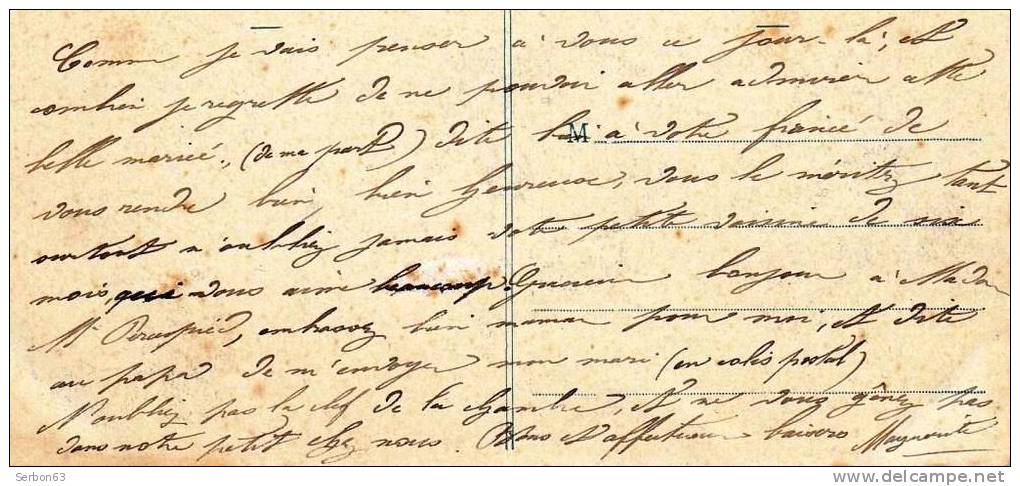 Comme je vais penser à vous ce jour-là, et
combien je regrette de ne pouvoir aller admirer cette
belle mariée, (de ma part) dite M à votre fiancé de
vous rendre bien, bien heureuse, vous le méritez tant
surtout n'oubliez jamais votre petite voisine de six
mois, qui vous aime beaucoup. bonjour à Madame
Mr embrassez bien maman pour moi, et dite
au papa de m'envoyer mon mari (en colis postal)
N'oubliez pas la clef de la chambre, et ne vous gênez pas
dans notre petit chez nous. Bons et affectueux baisers Marguerite
Serbon63
delcampe.net